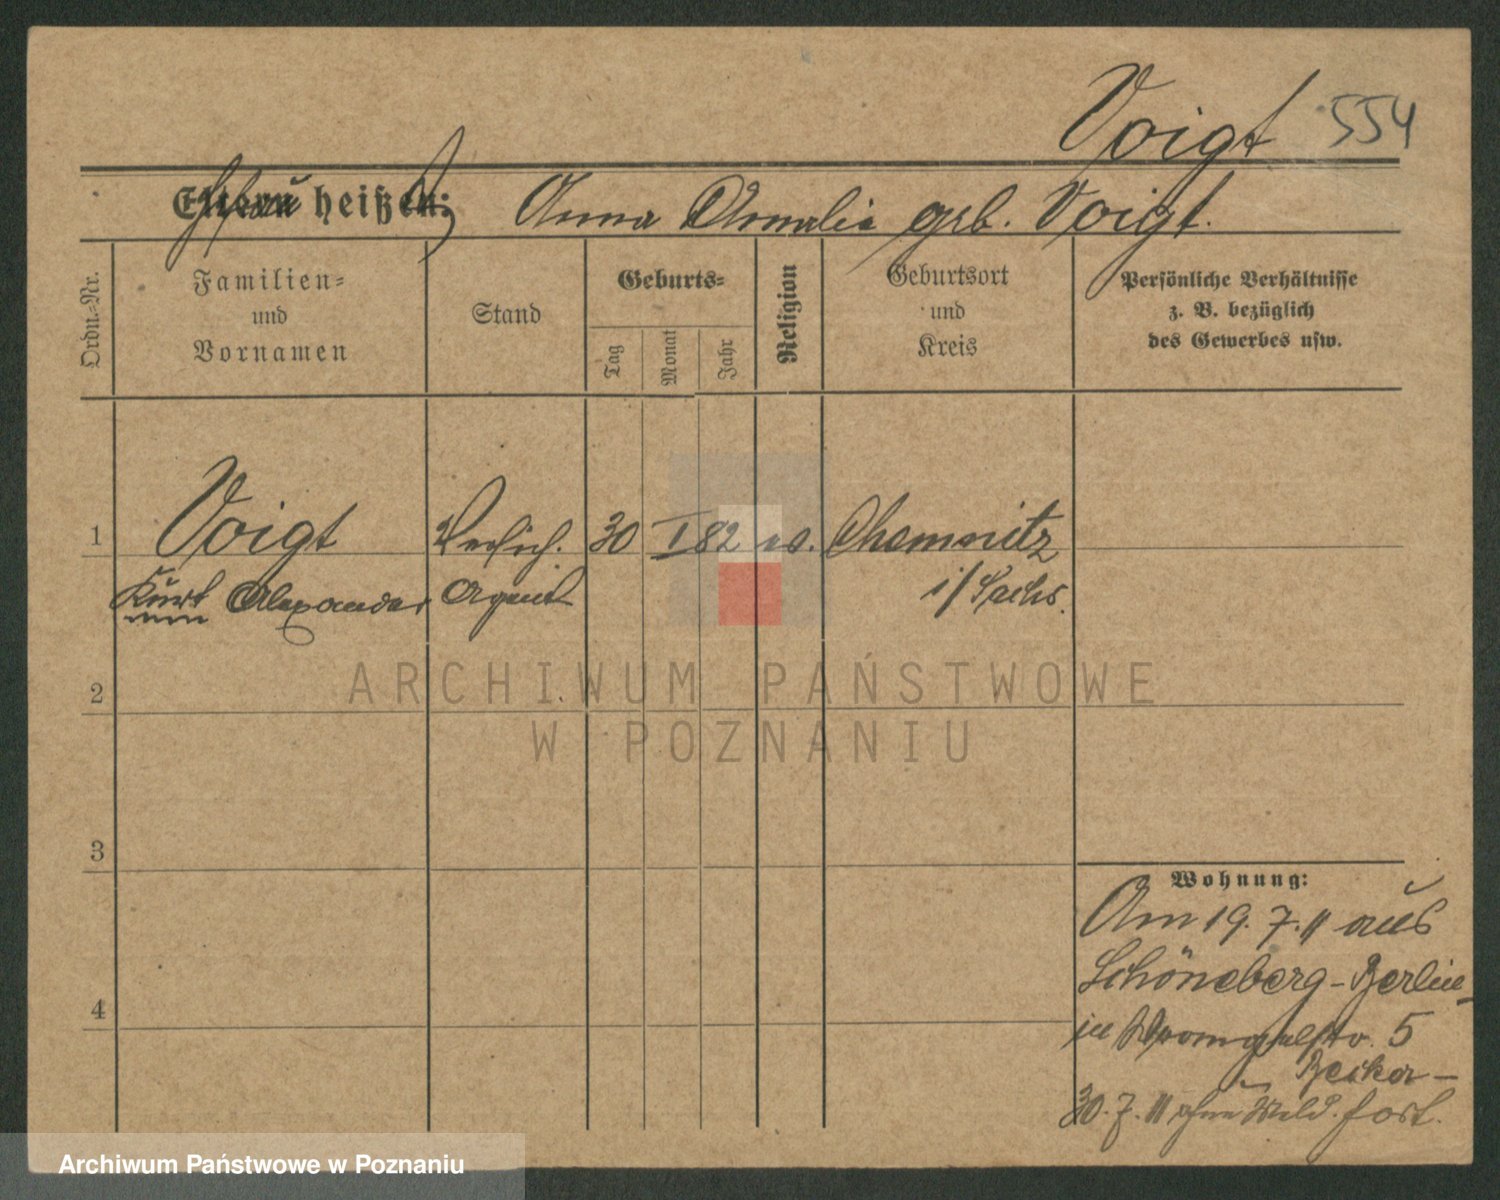 Voigt 554
Eltern heißen: Anna Amalie geb. Voigt.
Ordn.-Nr.
Familien-
und
Vornamen
Stand
Geburts-
Tag
Monat
Jahr
Religion
Geburtsort
und
Kreis
Persönliche Verhältnisse
z. B. bezüglich
des Gewerbes usw.
1 Voigt Versich. 30 I 82 ev. Chemnitz
Kurt Alexander Agent i/Sachs.
2
ARCHIWUM PAŃSTWOWE
W POZNANIU
3
Wohnung:
Am 19. 7. 11 aus
Schöneberg-Berlin
4
in 5
Becker-
30. 7. 11 ohne Meld. fort.
Archiwum Państwowe w Poznaniu